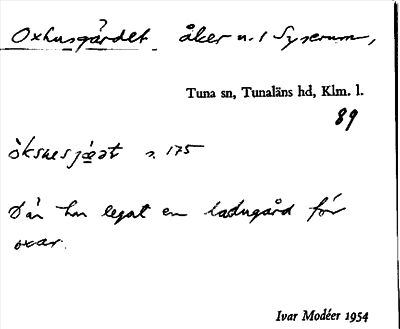 Oxhusgärdet åker n. 1 Syserum,
Tuna sn, Tunaläns hd, Klm. l.
89
s. 175
Där har legat en ladugård för
oxar.
Ivar Modéer 1954